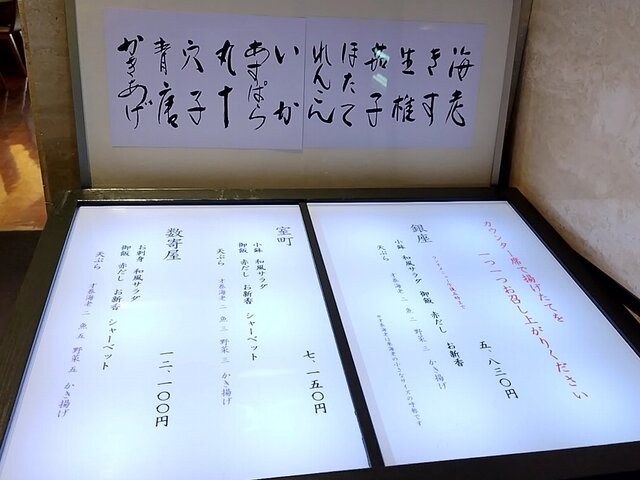 海老
きす
生椎
茄子
ほたて
れんこん
いか
あすぱら
丸十
穴子
青唐
かきあげ
カウンター席で揚げたてを
一つ一つお召し上がりください
銀座
五、八三〇円
小鉢 和風サラダ 御飯 赤だし お新香
天ぷら 才巻海老 二 魚 二 野菜 三 かき揚げ
室町
七、一五〇円
小鉢 和風サラダ
御飯 赤だし お新香 シャーベット
天ぷら 才巻海老 二 魚 三 野菜 三 かき揚げ
数寄屋
一二、一〇〇円
お刺身 和風サラダ
御飯 赤だし お新香 シャーベット
天ぷら 才巻海老 二 魚 五 野菜 五 かき揚げ